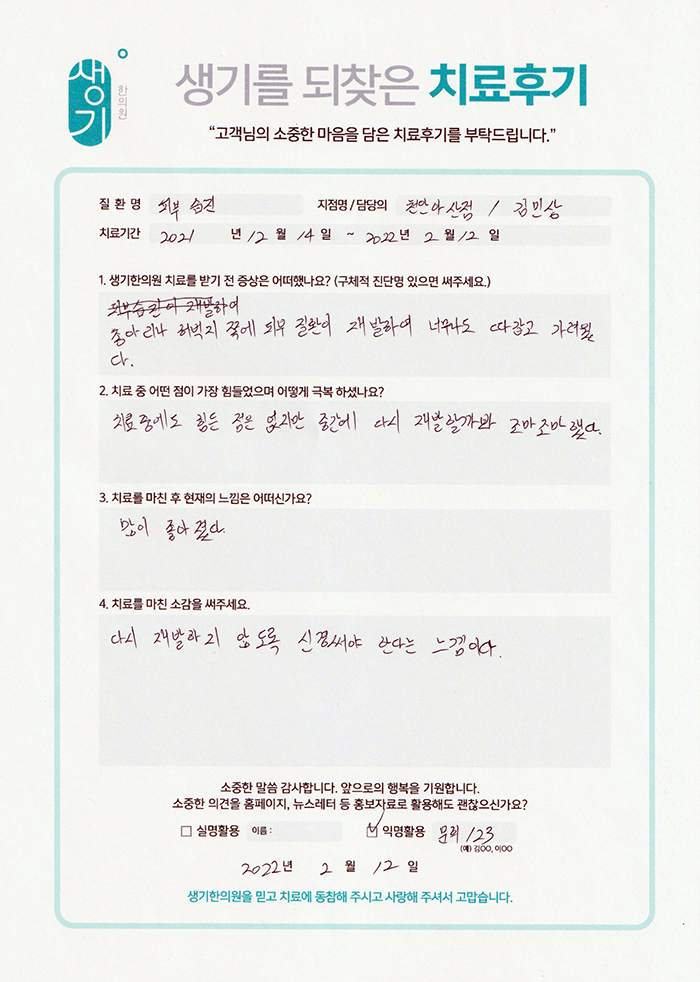 생기
한의원
생기를 되찾은 치료후기
“고객님의 소중한 마음을 담은 치료후기를 부탁드립니다.”
질 환 명 피부 습진 지점명 / 담당의 천안아산점 / 김민상
치료기간 2021 년 12 월 14 일 ~ 2022 년 2 월 12 일
1. 생기한의원 치료를 받기 전 증상은 어떠했나요? (구체적 진단명 있으면 써주세요.)
피부습진이 재발하여
종아리나 허벅지 쪽에 피부 질환이 재발하여 너무나도 따갑고 가려웠
다.
2. 치료 중 어떤 점이 가장 힘들었으며 어떻게 극복 하셨나요?
치료중에도 힘든 점은 없지만 중간에 다시 재발할까봐 조마조마했다.
3. 치료를 마친 후 현재의 느낌은 어떠신가요?
많이 좋아졌다.
4. 치료를 마친 소감을 써주세요.
다시 재발하지 않도록 신경써야 한다는 느낌이다.
소중한 말씀 감사합니다. 앞으로의 행복을 기원합니다.
소중한 의견을 홈페이지, 뉴스레터 등 홍보자료로 활용해도 괜찮으신가요?
□ 실명활용 이름 : ☑ 익명활용 123
(예) 김OO, 이OO
2022 년 2 월 12 일
생기한의원을 믿고 치료에 동참해 주시고 사랑해 주셔서 고맙습니다.